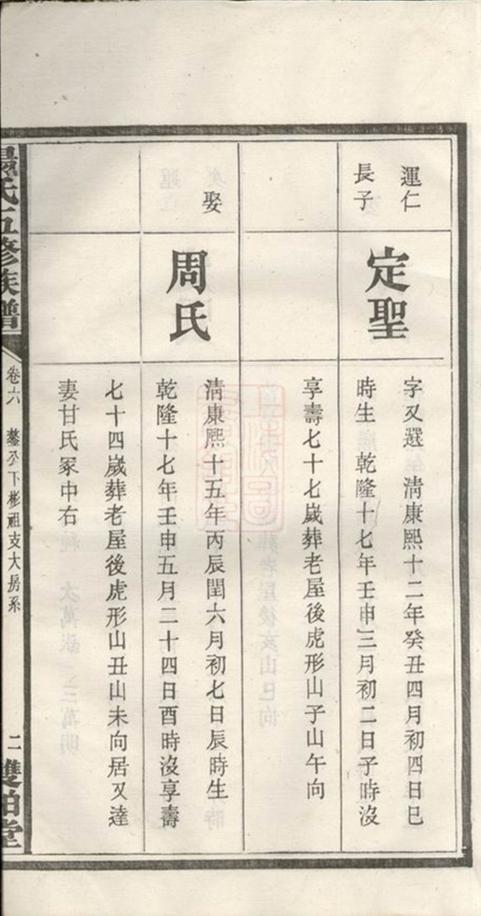 運仁
長子
定聖
字又選 清康熙十二年癸丑四月初四日巳
時生 乾隆十七年壬申三月初二日子時沒
享壽七十七歲葬老屋後虎形山子山午向
娶
周氏
清康熙十五年丙辰閏六月初七日辰時生
乾隆十七年壬申五月二十四日酉時沒享壽
七十四歲葬老屋後虎形山丑山未向居又達
妻甘氏冢中右
氏五修族譜
卷六 鏊公下彬祖支大房系
二
雙柏堂